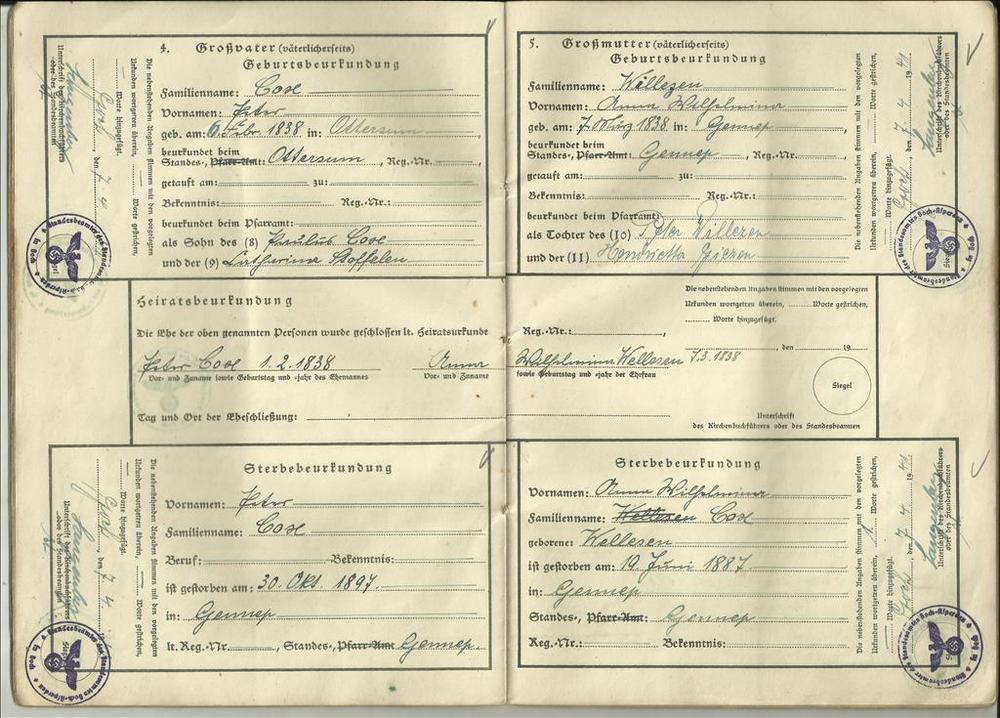 4. Großvater (väterlicherseits)
Geburtsbeurkundung
Familienname: Cose
Vornamen: Peter
geb. am: 6. Febr. 1838 in: Ottersum
beurkundet beim
Standes-, Pfarr-Amt: Ottersum, Reg.-Nr.
getauft am: zu:
Bekenntnis: Reg.-Nr.:
beurkundet beim Pfarramt:
als Sohn des (8) Paulus Cose
und der (9) Catharina Stoffelen
Die nebenstehenden Angaben stimmen mit den vorgelegten
Urkunden wortgetreu überein, Worte gestrichen,
Worte hinzugefügt.
Goch, den 7. 4.
Unterschrift des Kirchenbuchführers
oder des Standesbeamten
5. Großmutter (väterlicherseits)
Geburtsbeurkundung
Familienname: Wellezen
Vornamen: Anna Wilhelmina
geb. am: 7. März 1838 in: Gennep
beurkundet beim
Standes-, Pfarr-Amt: Gennep, Reg.-Nr.
getauft am: zu:
Bekenntnis: Reg.-Nr.:
beurkundet beim Pfarramt:
als Tochter des (10) Peter Willezen
und der (11) Hendrietta Giezen
Die nebenstehenden Angaben stimmen mit den vorgelegten
Urkunden wortgetreu überein, Worte gestrichen,
Worte hinzugefügt.
Goch, den 7. 4. 1941
Unterschrift des Kirchenbuchführers
oder des Standesbeamten
Heiratsbeurkundung
Die Ehe der oben genannten Personen wurde geschlossen lt. Heiratsurkunde Reg.-Nr.:
Peter Cose 1.2.1838 Anna Wilhelmina Wellesen 7.3.1838
Vor- und Zuname sowie Geburtstag und -jahr des Ehemannes Vor- und Zuname sowie Geburtstag und -jahr der Ehefrau
Tag und Ort der Eheschließung:
Die nebenstehenden Angaben stimmen mit den vorgelegten
Urkunden wortgetreu überein, Worte gestrichen,
Worte hinzugefügt.
, den 19
Siegel
Unterschrift
des Kirchenbuchführers oder des Standesbeamten
Sterbebeurkundung
Vornamen: Peter
Familienname: Cose
Beruf: Bekenntnis:
ist gestorben am: 30. Okt. 1897.
in: Gennep
lt. Reg.-Nr. , Standes-, Pfarr-Amt Gennep.
Die nebenstehenden Angaben stimmen mit den vorgelegten
Urkunden wortgetreu überein, Worte gestrichen,
Worte hinzugefügt.
Goch, den 7. 4.
Unterschrift des Kirchenbuchführers
oder des Standesbeamten
Sterbebeurkundung
Vornamen: Anna Wilhelmina
Familienname: Wellesen Cose
geborene: Wellesen
ist gestorben am: 19. Juni 1887.
in: Gennep
Standes-, Pfarr-Amt: Gennep
Reg.-Nr.: Bekenntnis:
Die nebenstehenden Angaben stimmen mit den vorgelegten
Urkunden wortgetreu überein, 1 Worte gestrichen,
Worte hinzugefügt.
Goch, den 7. 4. 1941
Unterschrift des Kirchenbuchführers
oder des Standesbeamten